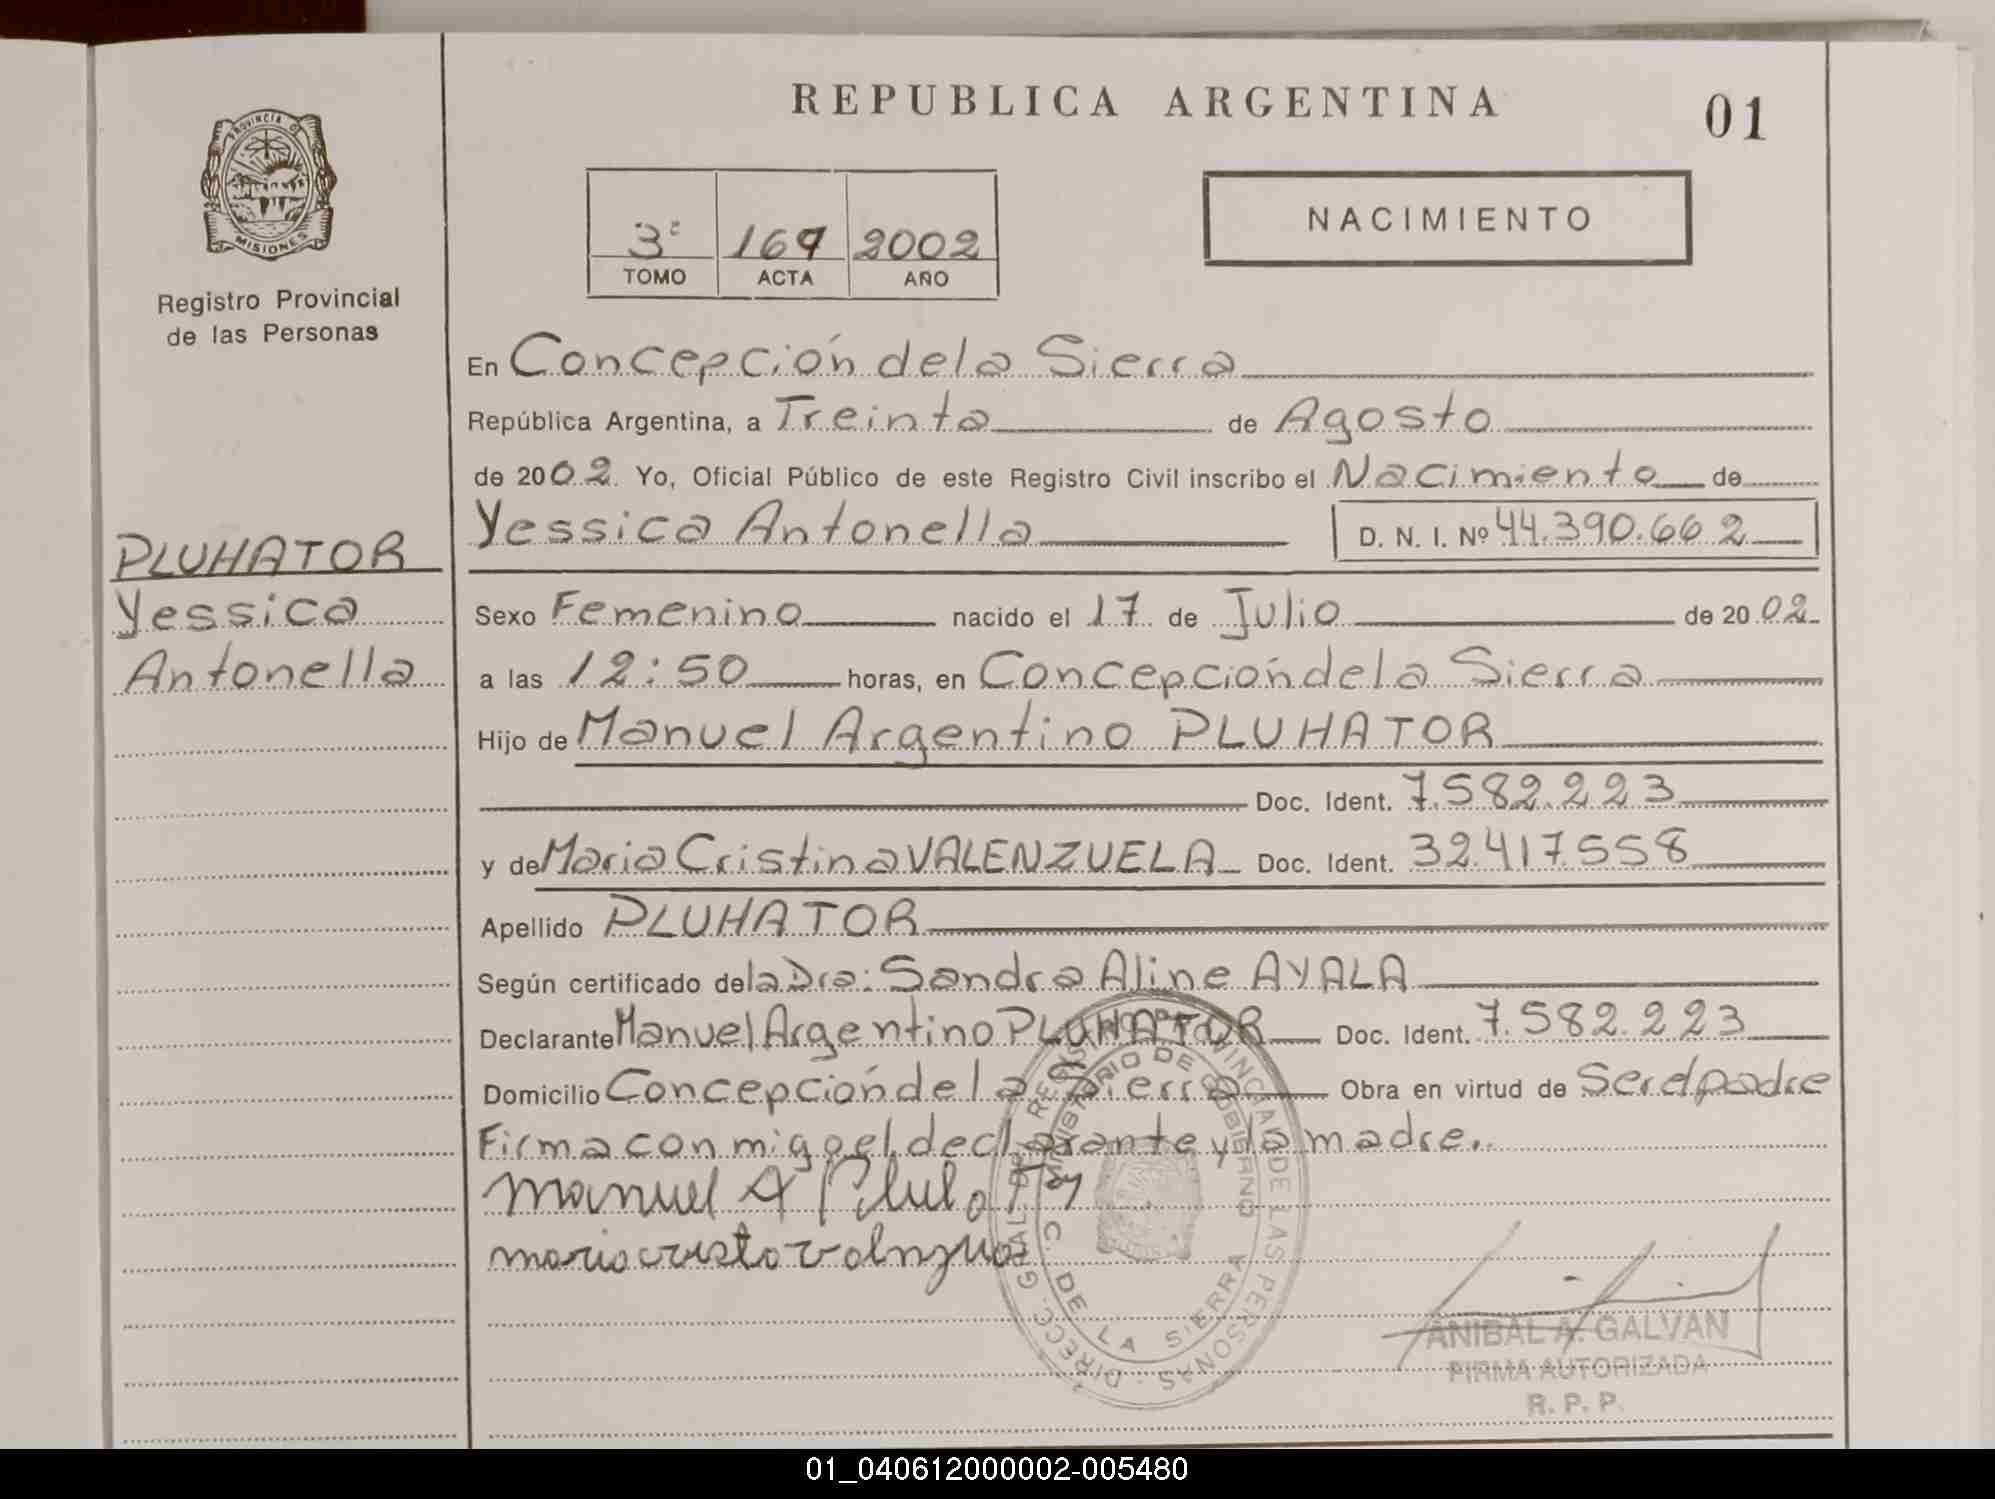 REPUBLICA ARGENTINA
01
PROVINCIA D
MISIONES
Registro Provincial
de las Personas
3º 169 2002
TOMO ACTA AÑO
NACIMIENTO
En Concepción de la Sierra
República Argentina, a Treinta de Agosto
de 2002. Yo, Oficial Público de este Registro Civil inscribo el Nacimiento de
Yessica Antonella D. N. I. Nº 44.390.662
PLUHATOR
Yessica
Antonella
Sexo Femenino nacido el 17 de Julio de 2002
a las 12:50 horas, en Concepción de la Sierra
Hijo de Manuel Argentino PLUHATOR
Doc. Ident. 7.582.223
y de Maria Cristina VALENZUELA Doc. Ident. 32.417.558
Apellido PLUHATOR
Según certificado de la Dra: Sandra Aline AYALA
Declarante Manuel Argentino PLUHATOR Doc. Ident. 7.582.223
Domicilio Concepción de la Sierra Obra en virtud de Ser el padre
Firma conmigo el declarante y la madre.
Manuel A
DIRECC. GRAL. DEL REGISTRO PROVINCIAL DE LAS PERSONAS
MINISTERIO DE GOBIERNO
C. DE LA SIERRA
ANIBAL A. GALVAN
FIRMA AUTORIZADA
R. P. P.
01_040612000002-005480